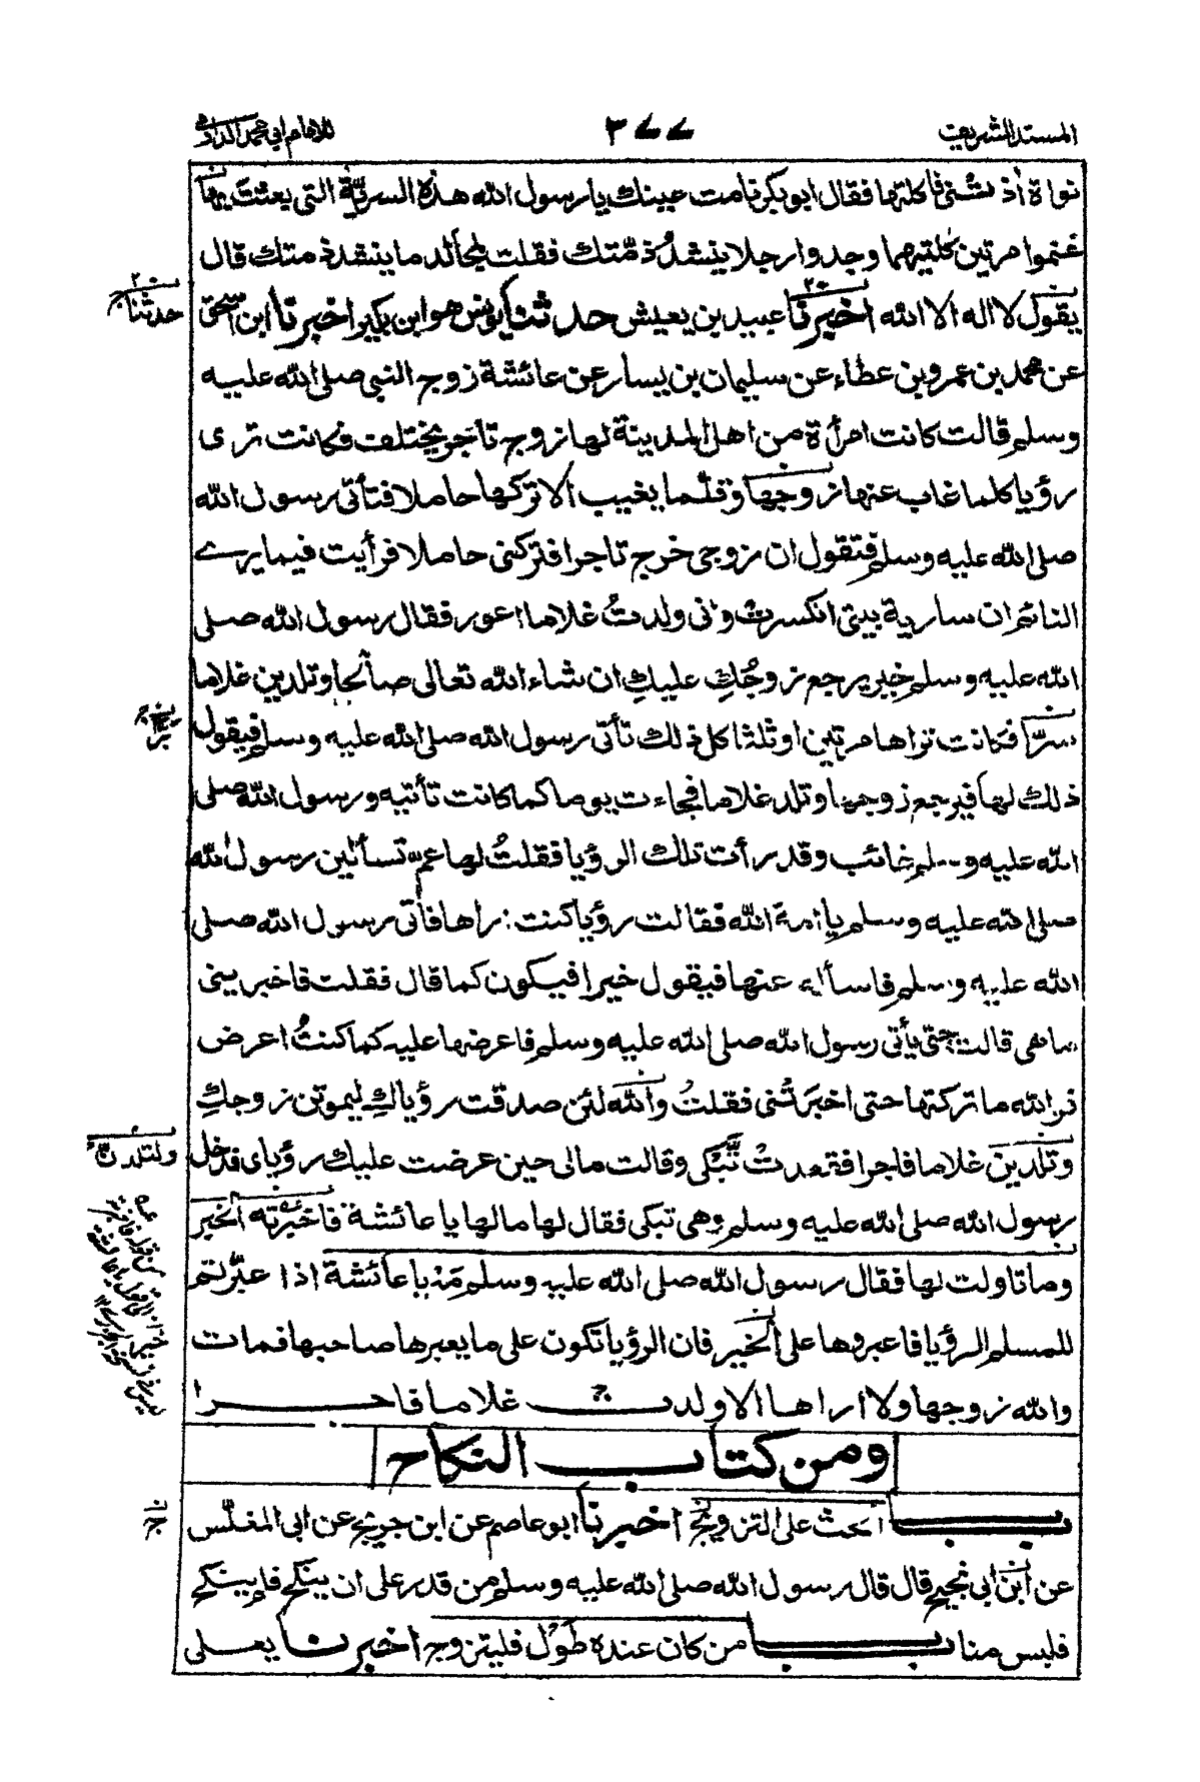 المسند الشريف
٣٧٧
للامام ابي محمد الدارمي
نواة أذتنى فاكلتها فقال ابو بكر نامت عينك يا رسول الله هذه السرية التى بعثت بها
غنموا مرتين كلتيهما وجدوا رجلا ينشد ذمتك فقلت لمجالد ما ينشد ذمتك قال
يقول لا اله الا الله اخبرنا عبيد بن يعيش حدثنا يونس هو ابن بكير اخبرنا ابن اسحق
حدثنا
عن محمد بن عمرو بن عطاء عن سليمان بن يسار عن عائشة زوج النبي صلى الله عليه
وسلم قالت كانت امرأة من اهل المدينة لها زوج تاجر يختلف فكانت ترى
رؤيا كلما غاب عنها زوجها وقلما يغيب الا تركها حاملا فتأتى رسول الله
صلى الله عليه وسلم فتقول ان زوجى خرج تاجرا فتركنى حاملا فرأيت فيما يرى
النائم ان سارية بيتى انكسرت وانى ولدت غلاما اعور فقال رسول الله صلى
الله عليه وسلم خير يرجع زوجك عليك ان شاء الله تعالى صالحا وتلدين غلاما
برّا فكانت تراها مرتين او ثلثا كل ذلك تأتى رسول الله صلى الله عليه وسلم فيقول
ذلك لها فيرجع زوجها وتلد غلاما فجاءت يوما كما كانت تأتيه ورسول الله صلى
الله عليه وسلم غائب وقد رأت تلك الرؤيا فقلتُ لها عمّ تسألين رسول الله
صلى الله عليه وسلم يا امة الله فقالت رؤيا كنت اراها فآتى رسول الله صلى
الله عليه وسلم فاسأله عنها فيقول خيرا فيكون كما قال فقلت فاخبرينى
ما هى قالت حتى يأتى رسول الله صلى الله عليه وسلم فاعرضها عليه كما كنتُ اعرض
فوالله ما تركتها حتى اخبرتنى فقلتُ والله لئن صدقت رؤياكِ ليموتن زوجكِ
وتلدين غلاما فاجرا فقعدت تبكى وقالت مالى حين عرضت عليك رؤياى فدخل
ولتلدنّ
رسول الله صلى الله عليه وسلم وهى تبكى فقال لها مالها يا عائشة فاخبرته الخبر
وما تاولت لها فقال رسول الله صلى الله عليه وسلم مه يا عائشة اذا عبرتم
للمسلم الرؤيا فاعبروها على الخير فان الرؤيا تكون على ما يعبرها صاحبها فمات
والله زوجها ولا اراها الا ولدت غلاما فاجرا
ومن كتاب النكاح
باب الحث على التزويج اخبرنا ابو عاصم عن ابن جريج عن ابى المغلّس
عن ابن ابى نجيح قال قال رسول الله صلى الله عليه وسلم من قدر على ان ينكح فلم ينكح
فليس منا باب من كان عنده طَول فليتزوج اخبرنا يعلى